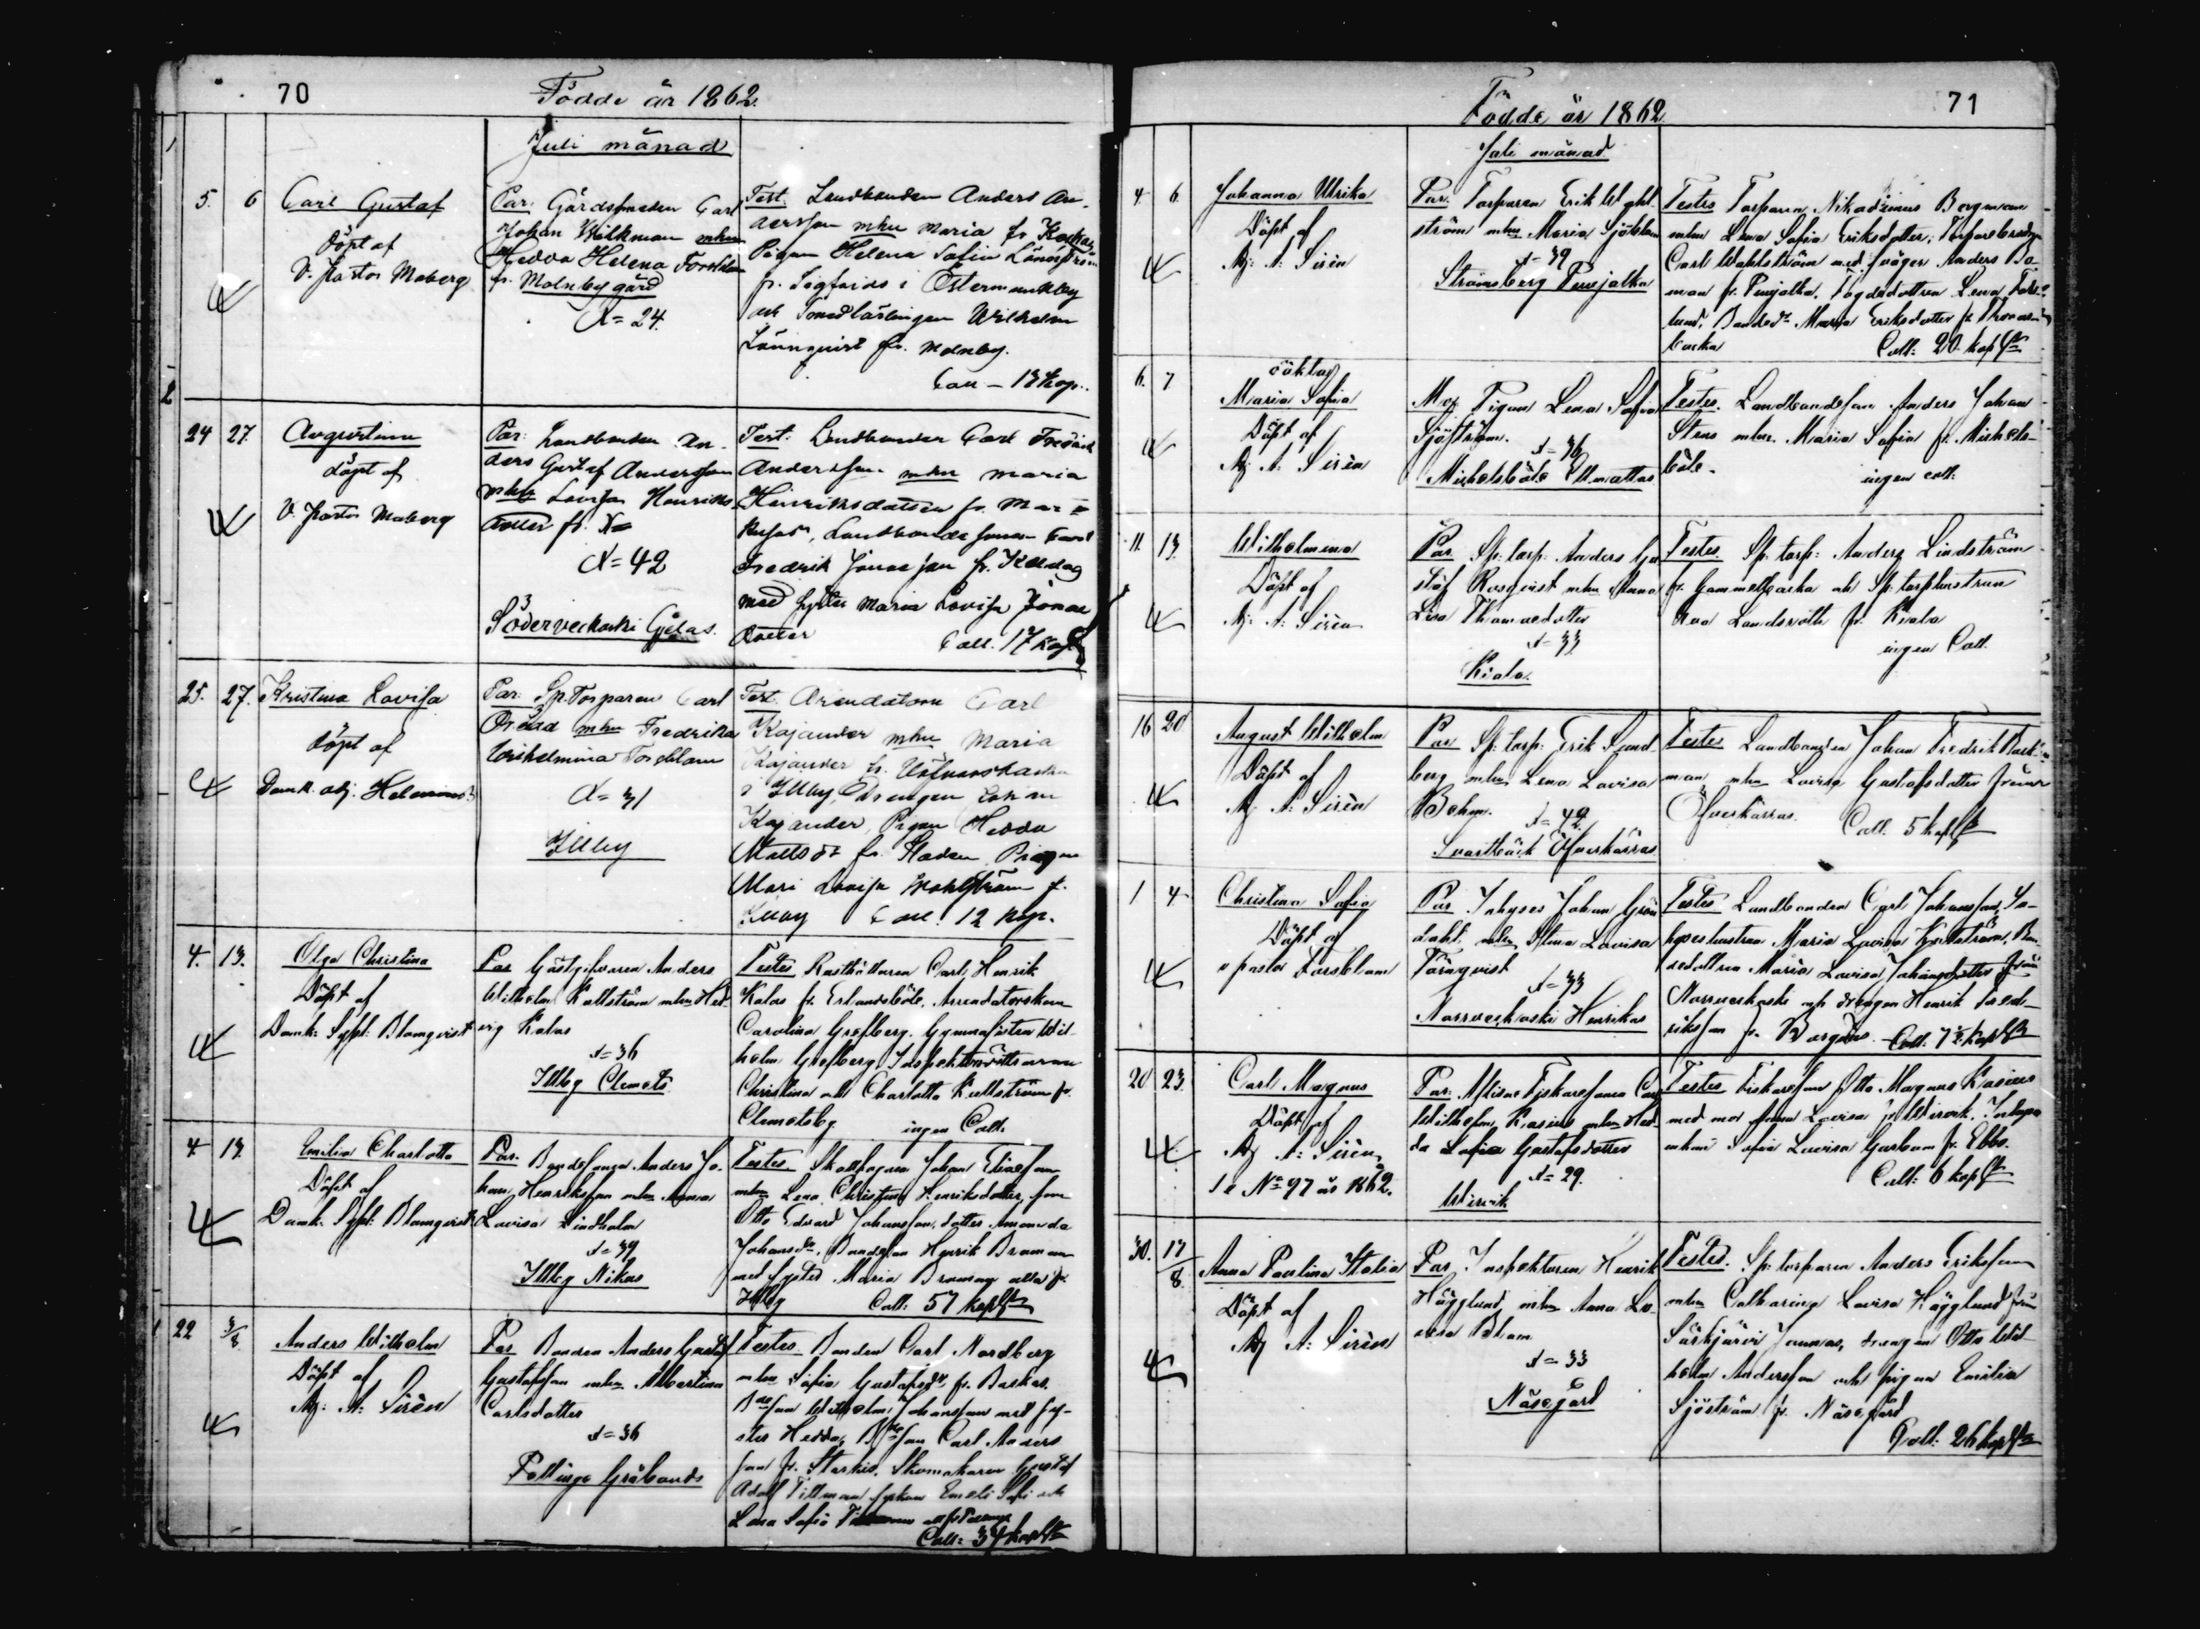 70
Födde år 1862.
Juli månad
5. 6
Carl Gustaf
döpt af
V. Pastor Moberg
Par: Gårdssmeden Carl
Johan Wilkman mhu
Hedva Helena Forsblom
fr. Molnby gård
Æ= 24.
Test. Landbonden Anders An-
dersson mhu Maria fr.
Pigan Helena Sofia Lönnström
fr. Sigfrids i Östermunkby
och Smedlärlingen Wilhelm
Lönnqvist fr. Molnby.
Coll – 13 kop.
24 27.
Augustina
döpt af
V. Pastor Moberg
Par: Landbonden An-
ders Gustaf Andersson
mhu Lovisa Henriks
dotter fr.
Æ= 42
Södervekoski Gjelas.
Test: Landbonden Carl Fredrik
Andersson mhu Maria
Henriksdotter fr.
Landbondesonen Carl
Fredrik Jonasson fr.
med syster Maria Lovisa Jonas
dotter
Coll. 17 kop
25. 27.
Kristina Lovisa
döpt af
Domk. adj.
Par: Sp. Torparen Carl
mhu Fredrika
Wilhelmina Forsblom
Æ= 31
Illby
Test. Arendatorn Carl
Kajander mhu Maria
Kajander fr.
i Illby, Drengen Johan
Kajander, Pigan Hedda
Mattsdr fr. Staden Pigan
Mari Lovisa Wahlström fr.
Illby Coll. 12 kop.
4. 13.
Olga Christina
Döpt af
Domk: Syssl: Blomqvist
Par Gästgifvaren Anders
Wilhelm Kullström mhu Hed-
vig Kalas
Æ= 36
Illby Clemets
Testes Rusthållaren Carl Henrik
Kalas fr. Erlandsböle, Arrendatorskan
Carolina Grefberg, Gymnasisten Wil-
helm Grefberg Inspektorsdöttrarna
Christina och Charlotta Kullström fr.
Clemetsby ingen Coll.
4. 13.
Emilia Charlotta
Döpt af
Domk: Syssl: Blomqvist
Par. Bondesonen Anders Jo-
han Henriksson mhu Anna
Lovisa Lindholm
Æ= 39
Illby Nikus
Testes Skallfogden Johan Eliasson
mhu Lena Christina Henriksdotter, son
Otto Edvard Johansson, dotter Amanda
Johansdr, Bondeson Henrik Broman
med syster Maria Broman alla fr.
Illby Coll: 57 kop
22 3/8.
Anders Wilhelm
Döpt af
Adj. A: Sirèn
Par Bonden Anders Gustaf
Gustafsson mhu Albertina
Carlsdotter
Æ= 36
Pellinge Gråbonds
Testes Bonden Carl Nordberg
mhu Sofia Gustafsdr. fr. Baskas.
Bdeson Wilhelm Johansson med sy-
ster Hedda, Bdeson Carl Anders
son fr. Starkis, Skomakaren Gustaf
Adolf Tillman systrar Emeli Sofi och
Lena Sofia
Coll: 34 kop
71
Födde år 1862.
Juli månad
4 6
Johanna Ulrika
Döpt af
Adj: A: Sirèn
Par. Torparen Erik Wahl-
ström mhu Maria Sjöblom
Æ= 39
Strömsberg Tenjalka
Testes Torparen Nikademus Bergman
mhu Lena Sofia Eriksdotter, Torparebrodren
Carl Wahlström med svåger Anders Bo-
man fr. Tenjalka, Fogdedottren Lena Fors-
lund, Bondedr. Maria Eriksdotter fr. Thomas-
backa Coll: 20 kop
6. 7
oäkta
Maria Sofia
Döpt af
Adj A: Sirèn
Mor Pigan Lena Sofia
Sjöström.
Æ= 36
Mickelsböle Ollmattas
Testes. Landbondeson Anders Johan
Stens mhu. Maria Sofia fr. Mickels-
böle. ingen coll.
11. 13.
Wilhelmina
Döpt af
Adj: A: Sirèn
Par Sp: torp: Anders Gu
staf Rosqvist mhu Anna
Lisa Thomasdotter
Æ= 33
Kiala.
Testes. Sp: torp: Anders Lindström
fr. Gammelbacka och Sp: torphustrun
Eva Landsroth fr. Kiala
ingen Coll.
16 20
August Wilhelm
Döpt af
Adj A: Sirèn
Par Sp: torp: Erik Sund-
berg mhu Lena Lovisa
Behm.
Æ= 42
Svartbäck Öfverkärras
Testes Landbonden Johan Fredrik
man mhu Lovisa Gustafsdotter från
Öfverkärras. Coll: 5 kop
1 4
Christina Sofia
Döpt af
v pastor Forsblom
Par Inhyses Johan Grön
dahl mhu Stina Lovisa
Törnqvist
Æ= 33
Norrveckoski Henrikas
Testes Landbonden Carl Johansson, In-
hyseshustrun Maria Lovisa Bon
dedottren Maria Lovisa Johansdotter från
Norrveckoski och drengen Henrik Fred-
riksson fr. Borgnäs. Coll. 7½ kop
20 23.
Carl Magnus
Döpt af
Adj A: Sirèn
se No 97 år 1862.
Par: Afliden Fiskaresonen Carl
Wilhelm Kasius mhu Hed-
da Sofia Gustafsdotter
Æ= 29.
Wirvik
Testes Fiskareson Otto Magnus Kasius
med mor Anna Lovisa fr. Wirvik,
enkan Sofia Lovisa Garbom fr. Ebbo.
Coll: 6 kop
30. 17/8.
Anna Paulina Italia
Döpt af
Adj A: Sirèn
Par. Inspektoren Henrik
Hägglund mhu Anna Lo-
visa Blom
Æ= 33
Näsegård
Testes. Sp: torparen Anders Eriksson
mhu Catharina Lovisa Hägglund från
Särkjärvi drengen Otto Wil-
helm Andersson och pigan Emilia
Sjöström fr. Näsegård
Coll: 26 kop